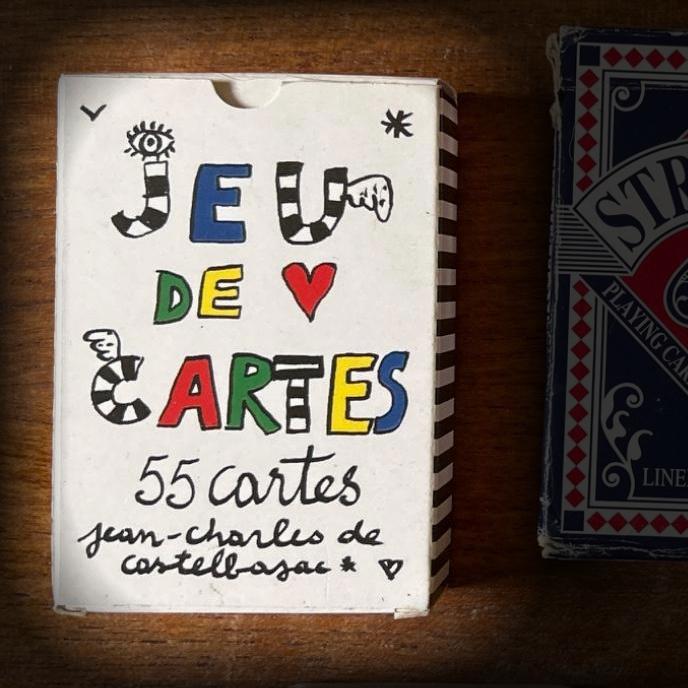 JEU
DE
CARTES
55 cartes
jean-charles de
castelbajac
PLAYING